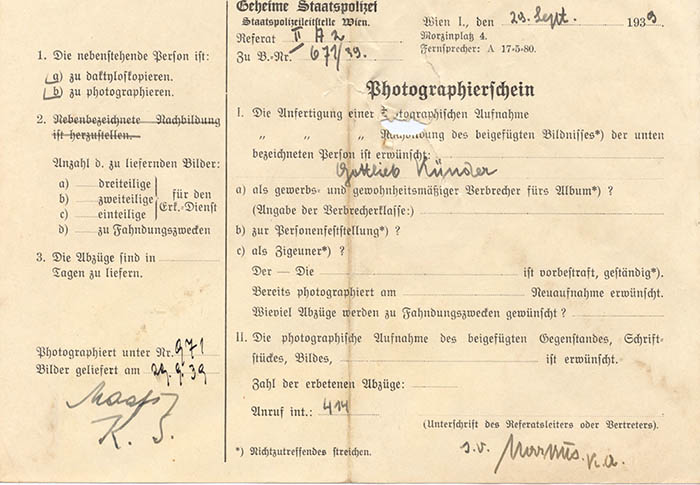 1. Die nebenstehende Person ist:
a) zu daktyloskopieren.
b) zu photographieren.
2. Nebenbezeichnete Nachbildung
ist herzustellen.
Anzahl d. zu liefernden Bilder:
a) dreiteilige
b) zweiteilige
c) einteilige
für den
Erk.-Dienst
d) zu Fahndungszwecken
3. Die Abzüge sind in
Tagen zu liefern.
Photographiert unter Nr. 971
Bilder geliefert am 29.9.39
Geheime Staatspolizei
Staatspolizeileitstelle Wien.
Referat II A 2
Zu B.-Nr. 671/39.
Wien I., den 29. Sept. 1939
Morzinplatz 4.
Fernsprecher: A 17-5-80.
Photographierschein
I. Die Anfertigung einer photographischen Aufnahme
" " " Nachbildung des beigefügten Bildnisses*) der unten
bezeichneten Person ist erwünscht:
Gottlieb Künder
a) als gewerbs- und gewohnheitsmäßiger Verbrecher fürs Album*) ?
(Angabe der Verbrecherklasse:)
b) zur Personenfeststellung*) ?
c) als Zigeuner*) ?
Der — Die ist vorbestraft, geständig*).
Bereits photographiert am Neuaufnahme erwünscht.
Wieviel Abzüge werden zu Fahndungszwecken gewünscht ?
II. Die photographische Aufnahme des beigefügten Gegenstandes, Schrift-
stückes, Bildes, ist erwünscht.
Zahl der erbetenen Abzüge:
Anruf int.: 414
(Unterschrift des Referatsleiters oder Vertreters).
*) Nichtzutreffendes streichen.